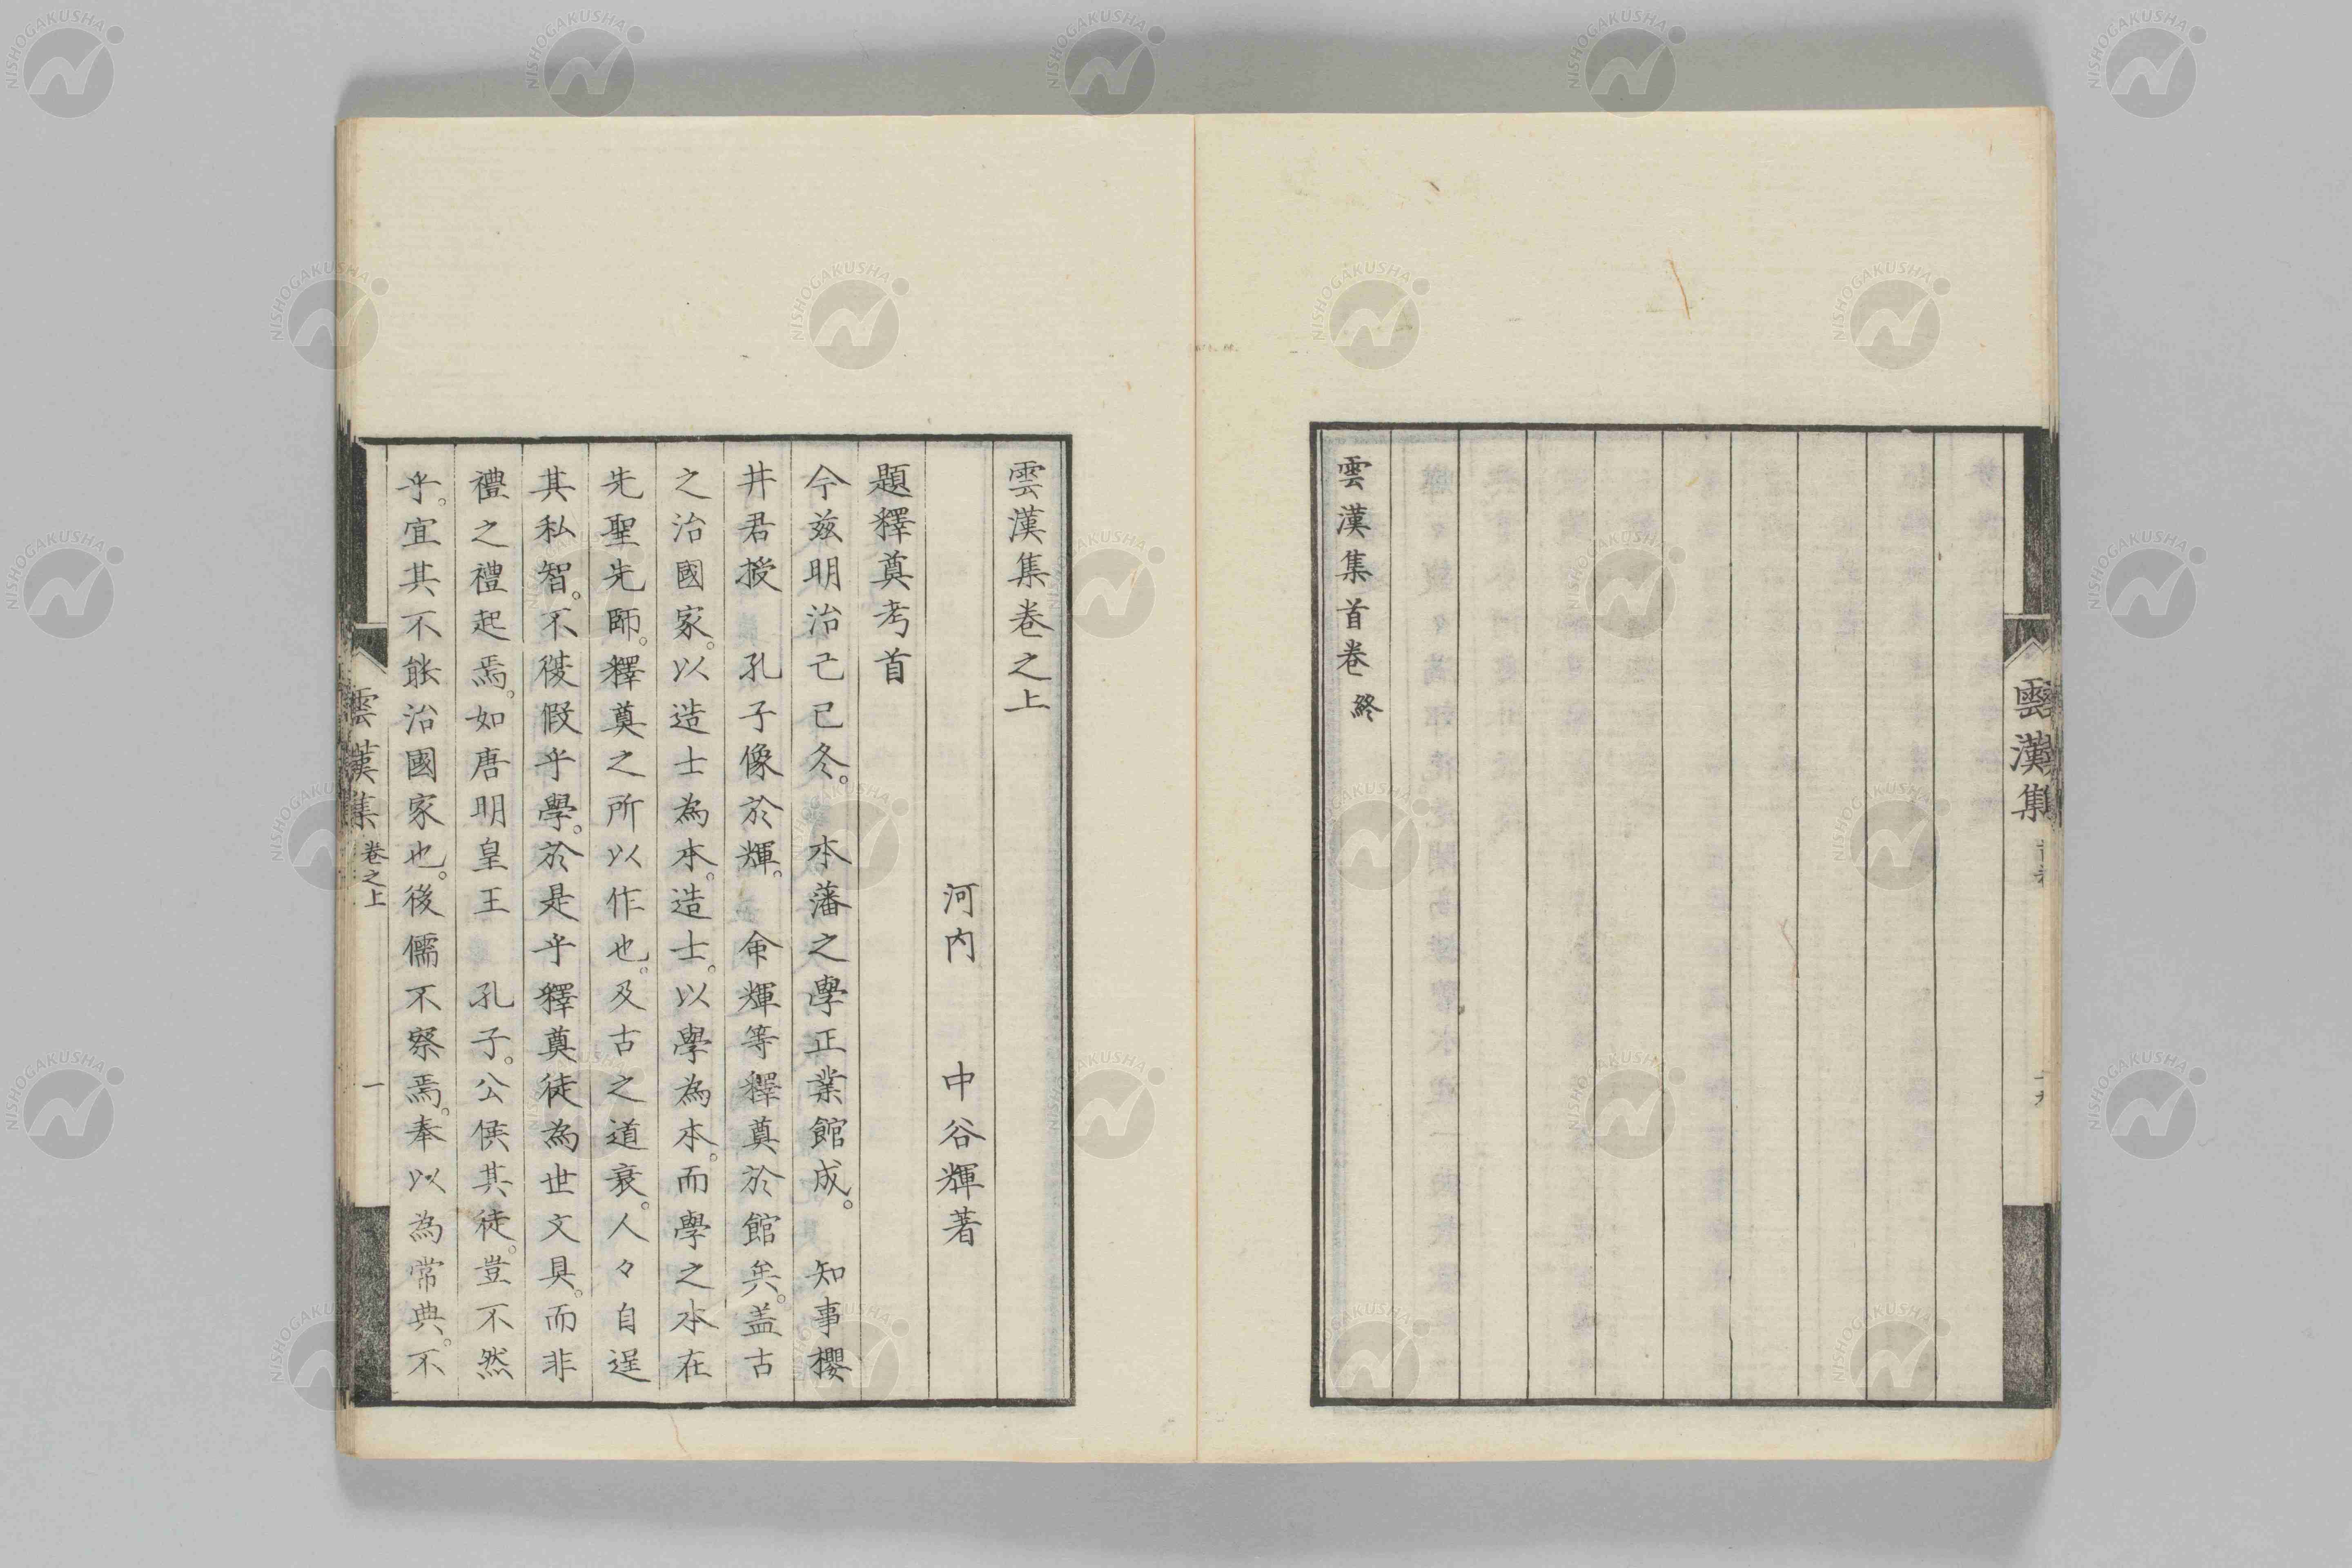 雲漢集
雲漢集首卷 終
雲漢集卷之上
河内　中谷輝著
題釋奠考首
今玆明治己巳冬。本藩之學正業館成。知事櫻
井君授　孔子像於輝。命輝等釋奠於館矣。蓋古
之治國家。以造士為本。造士。以學為本。而學之本在
先聖先師。釋奠之所以作也。及古之道衰。人々自逞
其私智。不復假乎學。於是乎釋奠徒為世文具。而非
禮之禮起焉。如唐明皇王　孔子。公侯其徒。豈不然
乎。宜其不能治國家也。後儒不察焉。奉以為常典。不
雲漢集 卷之上 一
NISHOGAKUSHA